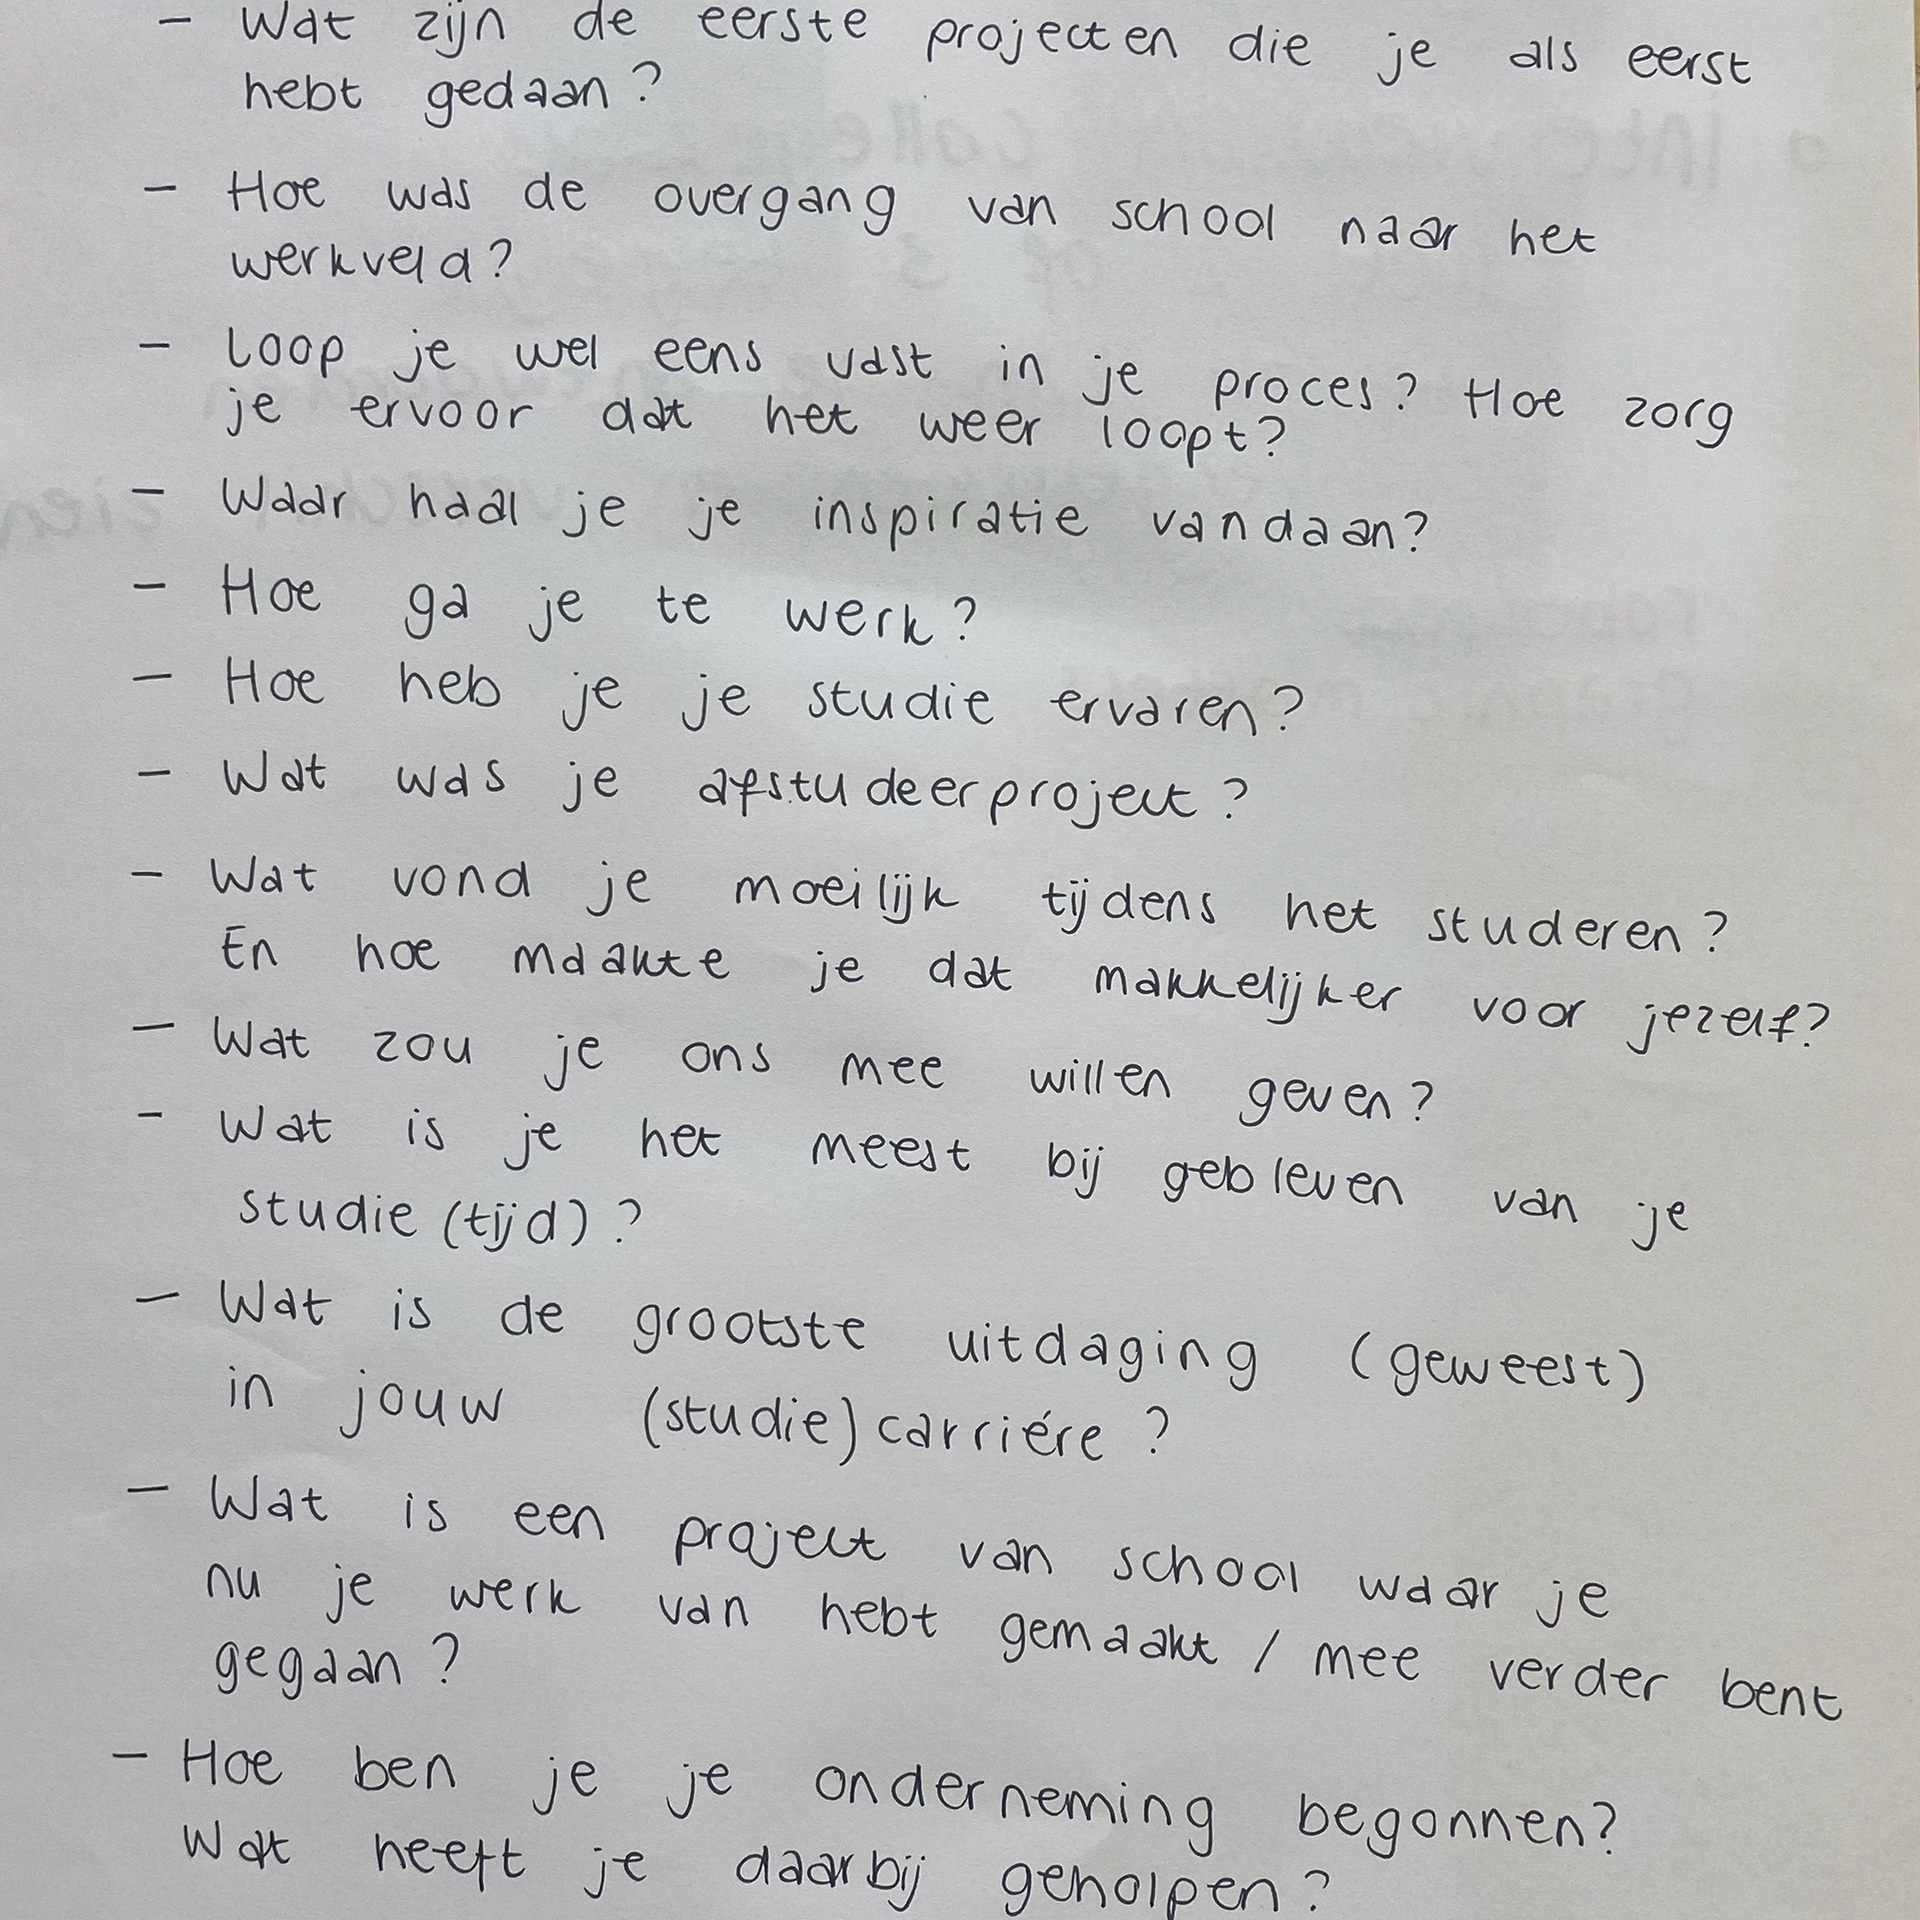 - Wat zijn de eerste projecten die je als eerst
hebt gedaan?
- Hoe was de overgang van school naar het
werkveld?
- Loop je wel eens vast in je proces? Hoe zorg
je ervoor dat het weer loopt?
- Waar haal je je inspiratie vandaan?
- Hoe ga je te werk?
- Hoe heb je je studie ervaren?
- Wat was je afstudeerproject?
- Wat vond je moeilijk tijdens het studeren?
En hoe maakte je dat makkelijker voor jezelf?
- Wat zou je ons mee willen geven?
- Wat is je het meest bij gebleven van je
studie (tijd)?
- Wat is de grootste uitdaging (geweest)
in jouw (studie) carriére?
- Wat is een project van school waar je
nu je werk van hebt gemaakt / mee verder bent
gegaan?
- Hoe ben je je onderneming begonnen?
Wat heeft je daarbij geholpen?